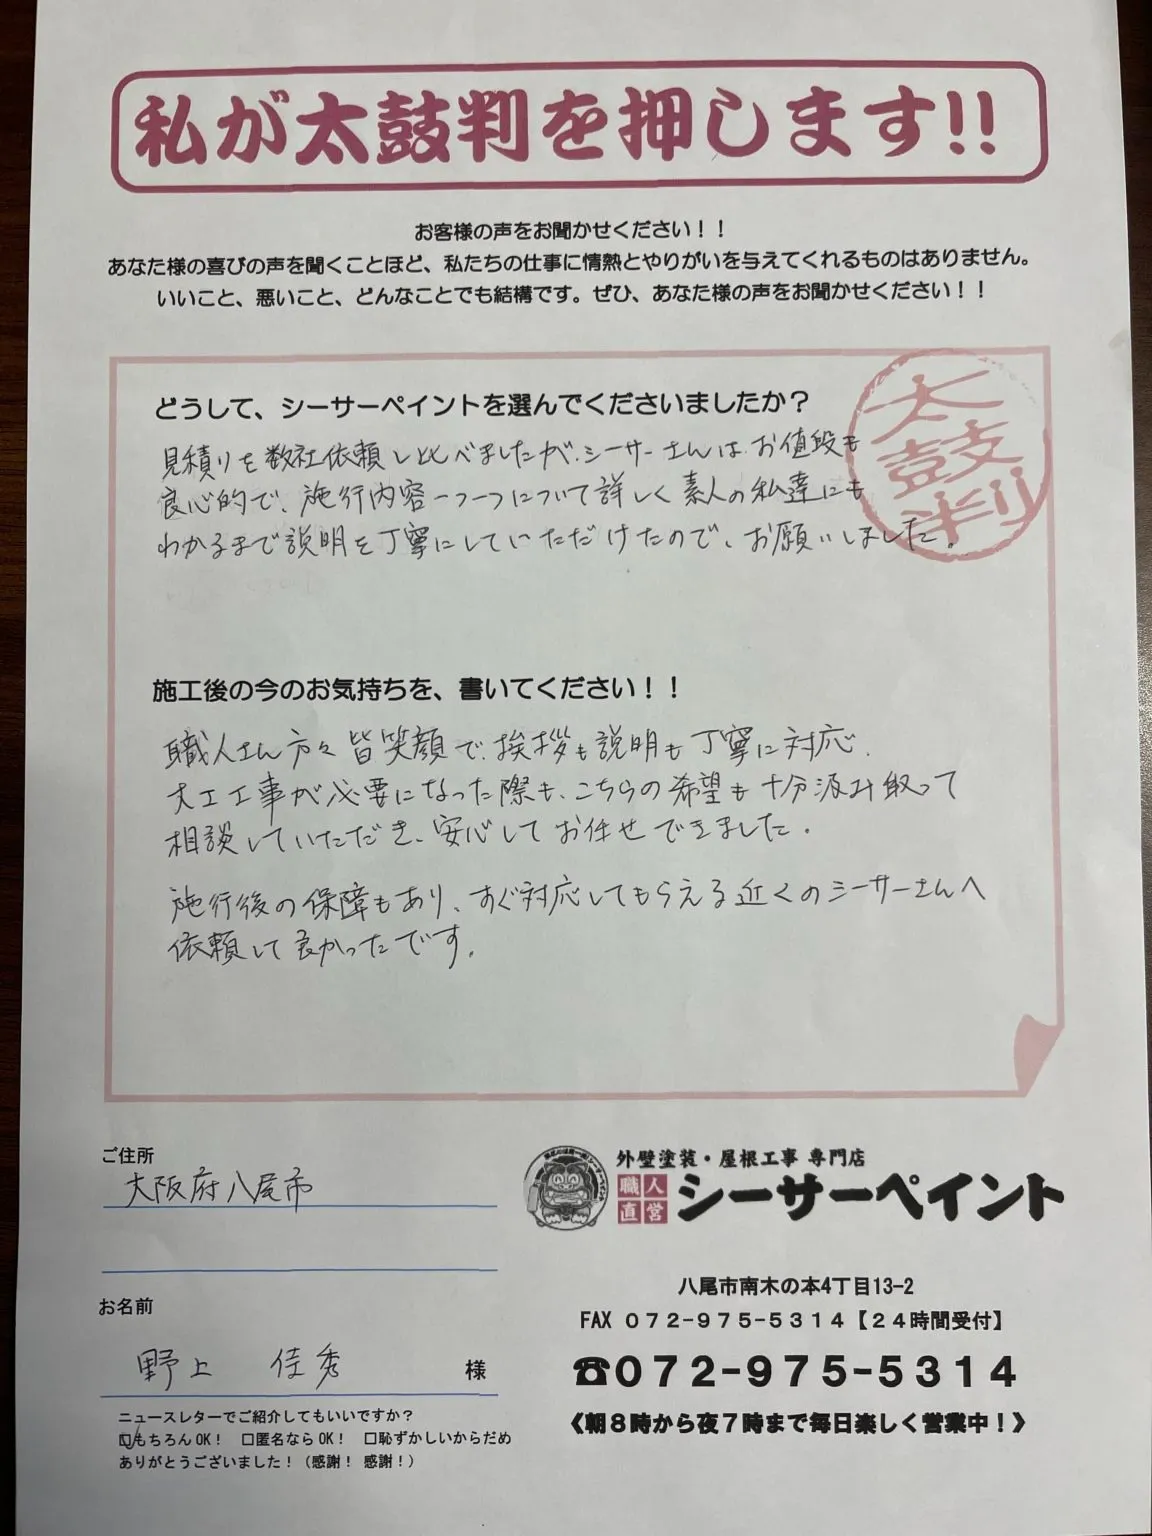 私が太鼓判を押します!!
お客様の声をお聞かせください！！
あなた様の喜びの声を聞くことほど、私たちの仕事に情熱とやりがいを与えてくれるものはありません。
いいこと、悪いこと、どんなことでも結構です。ぜひ、あなた様の声をお聞かせください！！
太鼓判
どうして、シーサーペイントを選んでくださいましたか？
見積りを数社依頼し比べましたが、シーサーさんは、お値段も
良心的で、施行内容一つ一つについて詳しく素人の私達にも
わかるまで説明を丁寧にしていただけたので、お願いしました。
施工後の今のお気持ちを、書いてください！！
職人さん方々皆笑顔で、挨拶も説明も丁寧に対応、
大工工事が必要になった際も、こちらの希望も十分汲み取って
相談していただき、安心してお任せできました。
施行後の保障もあり、すぐ対応してもらえる近くのシーサーさんへ
依頼して良かったです。
ご住所
大阪府八尾市
お名前
野上 佳秀 様
ニュースレターでご紹介してもいいですか？
☑もちろんOK！ □匿名ならOK！ □恥ずかしいからだめ
ありがとうございました！（感謝！ 感謝！）
外壁塗装・屋根工事 専門店
職人直営 シーサーペイント
八尾市南木の本4丁目13-2
FAX ０７２-９７５-５３１４【２４時間受付】
☎０７２-９７５-５３１４
《朝８時から夜７時まで毎日楽しく営業中！》